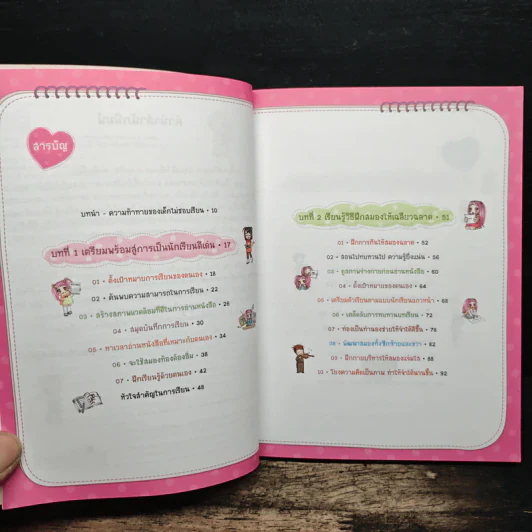 สารบัญ
บทนำ - ความท้าทายของเด็กไม่ชอบเรียน • 10
บทที่ 1 เตรียมพร้อมสู่การเป็นนักเรียนดีเด่น • 17
01 • ตั้งเป้าหมายการเรียนของตนเอง • 18
02 • ค้นพบความสามารถในการเรียน • 22
03 • สร้างสภาพแวดล้อมที่ดีในการอ่านหนังสือ • 26
04 • สมุดบันทึกการเรียน • 30
05 • หาเวลาอ่านหนังสือที่เหมาะกับตนเอง • 34
06 • จะใช้สมองต้องท้องอิ่ม • 38
07 • ฝึกเรียนรู้ด้วยตนเอง • 42
หัวใจสำคัญในการเรียน • 48
บทที่ 2 เรียนรู้วิธีฝึกสมองให้เฉลียวฉลาด • 51
01 • ฝึกการกินให้สมองฉลาด • 52
02 • สอนไปทบทวนไป ความรู้ยิ่งแน่น • 56
03 • ดูสภาพร่างกายก่อนอ่านหนังสือ • 60
04 • ตั้งเป้าหมายของตนเอง • 64
05 • เตรียมตัวเรียนตามแบบนักเรียนแถวหน้า • 68
06 • เคล็ดลับการทบทวนบทเรียน • 72
07 • ท่องเป็นทำนองช่วยให้จำได้ดีขึ้น • 76
08 • พัฒนาสมองทั้งซีกซ้ายและขวา • 82
09 • ฝึกกายบริหารให้สมองแจ่มใส • 88
10 • โยงความคิดเป็นภาพ ทำให้จำได้นานขึ้น • 92